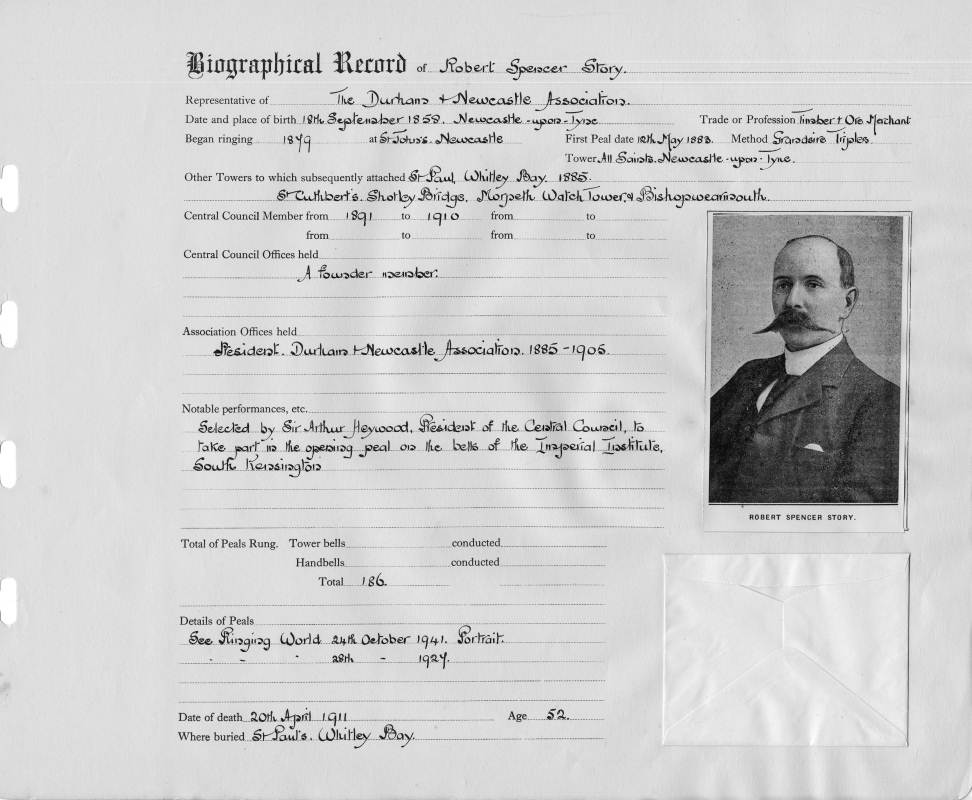 Biographical Record of Robert Spencer Story.
Representative of The Durham & Newcastle Association.
Date and place of birth 18th September 1858. Newcastle-upon-Tyne Trade or Profession Timber & Ore Merchant
Began ringing 1879 at St John's. Newcastle First Peal date 12th May 1883. Method Grandsire Triples.
Tower All Saints. Newcastle-upon-Tyne.
Other Towers to which subsequently attached St Paul, Whitley Bay. 1885.
St Cuthbert's. Shotley Bridge, Morpeth Watch Tower, & Bishopwearmouth.
Central Council Member from 1891 to 1910 from to
from to from to
Central Council Offices held
A founder member.
Association Offices held
President. Durham & Newcastle Association. 1885-1905.
Notable performances, etc.
Selected by Sir Arthur Heywood, President of the Central Council, to
take part in the opening peal on the bells of the Imperial Institute,
South Kensington
ROBERT SPENCER STORY.
Total of Peals Rung. Tower bells conducted
Handbells conducted
Total 186.
Details of Peals
See Ringing World 24th October 1941. Portrait.
" - " 28th - 1927.
Date of death 20th April 1911 Age 52.
Where buried St Paul's. Whitley Bay.